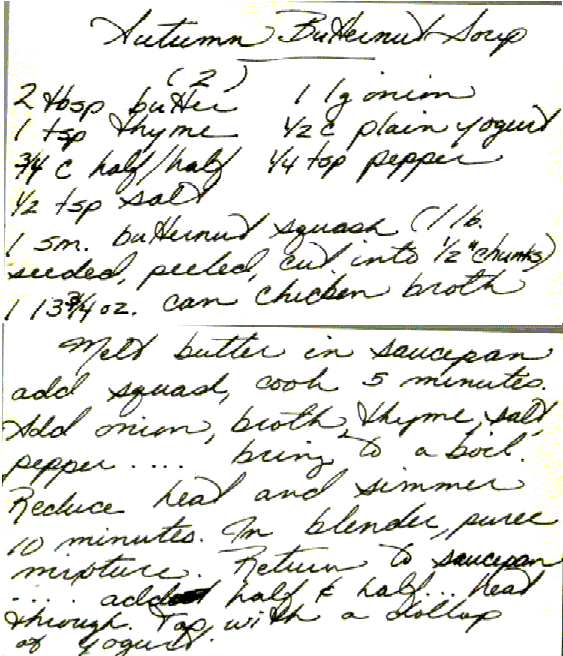 Autumn Butternut Soup
(2)
2 tbsp butter 1 lg onion
1 tsp thyme 1/2 c plain yogurt
3/4 c half/half 1/4 tsp pepper
1/2 tsp salt
1 sm. butternut squash (1 lb.
seeded, peeled, cut into 1/2" chunks)
1 13 3/4 oz. can chicken broth
Melt butter in saucepan
add squash, cook 5 minutes.
Add onion, broth, thyme, salt,
pepper .... bring to a boil.
Reduce heat and simmer
10 minutes. In blender, puree
mixture. Return to saucepan
.... add half & half... heat
through. Top with a dollop
of yogurt.